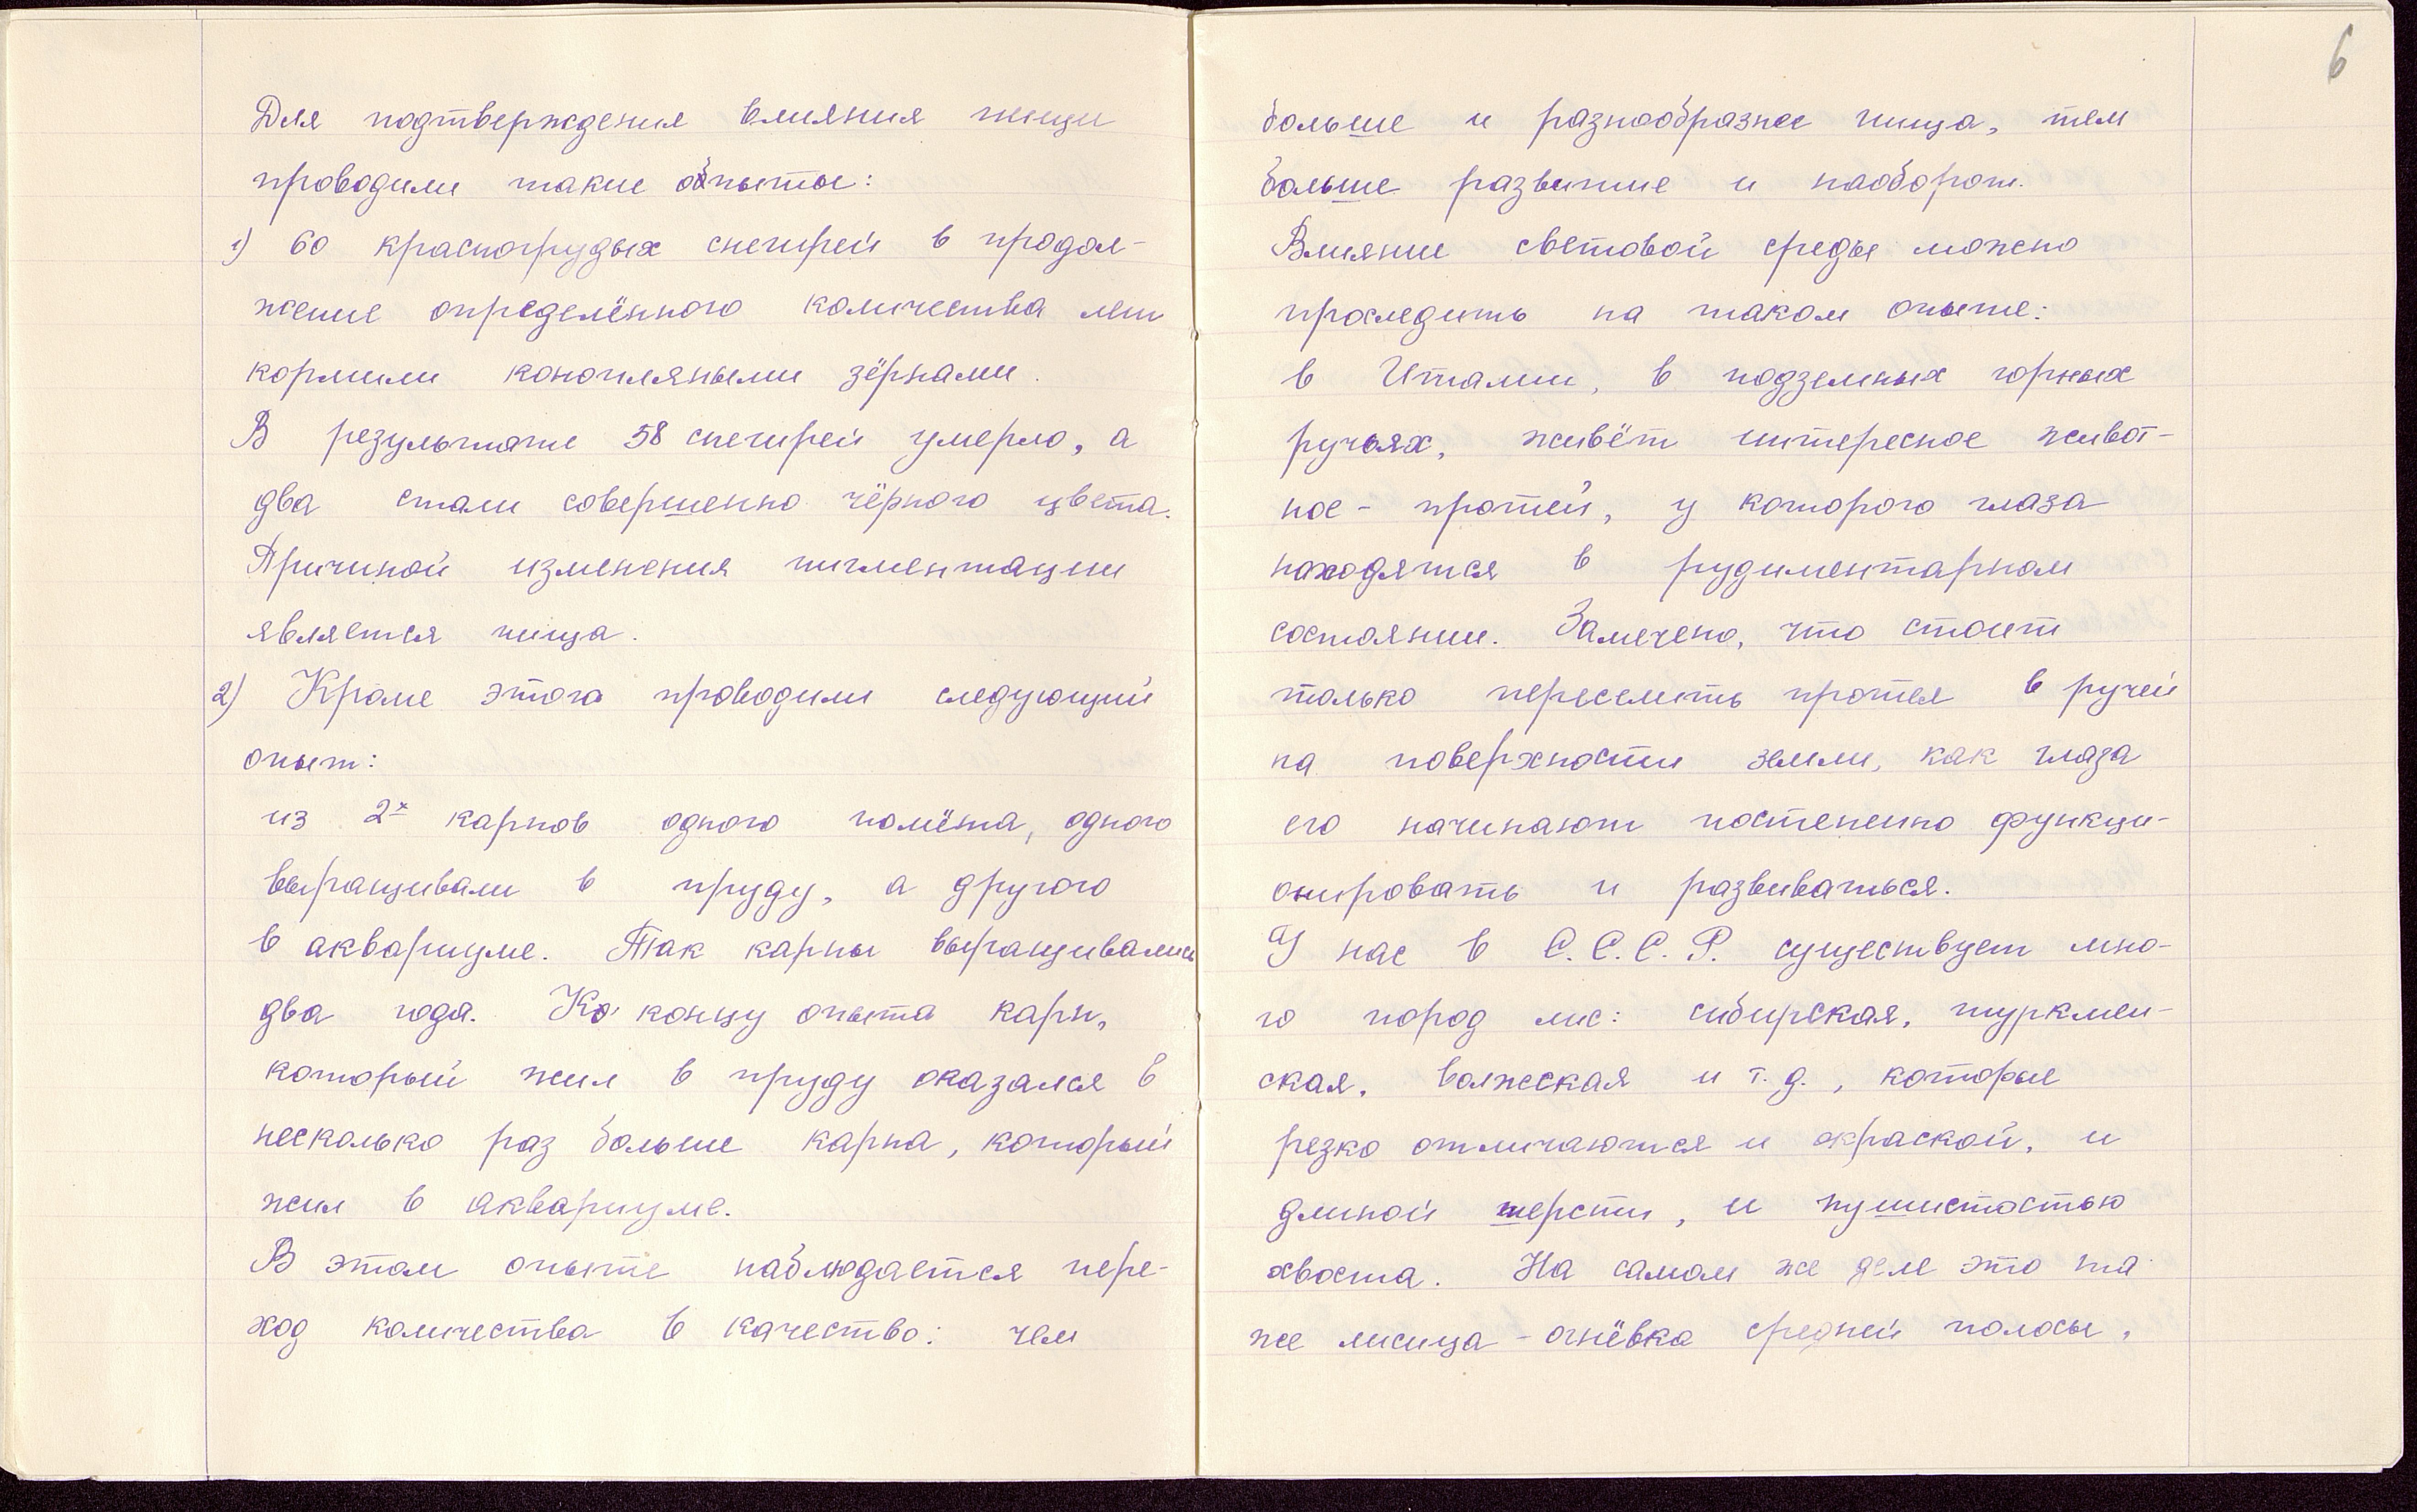 Для подтверждения влияния пищи
проводили такие опыты:
1) 60 красногрудых снегирей в продол-
жение определённого количества лет
кормили конопляными зёрнами.
В результате 58 снегирей умерло, а
два стали совершенно чёрного цвета.
Причиной изменения пигментации
является пища.
2) Кроме этого проводили следующий
опыт:
из 2х карпов одного помёта, одного
выращивали в пруду, а другого
в аквариуме. Так карпы выращивались
два года. К концу опыта карп,
который жил в пруду оказался в
несколько раз больше карпа, который
жил в аквариуме.
В этом опыте наблюдается пере-
ход количества в качество: чем
6
больше и разнообразнее пища, тем
больше развитие и наоборот.
Влияние световой среды можно
проследить на таком опыте:
в Италии, в подземных горных
ручьях, живёт интересное живот-
ное - протей, у которого глаза
находятся в рудиментарном
состоянии. Замечено, что стоит
только переселить протея в ручей
на поверхности земли, как глаза
его начинают постепенно функци-
онировать и развиваться.
У нас в С.С.С.Р. существует мно-
го пород лис: сибирская, туркмен-
ская, волжская и т.д., которые
резко отличаются и окраской, и
длиной шерсти, и пушистостью
хвоста. На самом же деле это та
же лисица - огнёвка средней полосы,